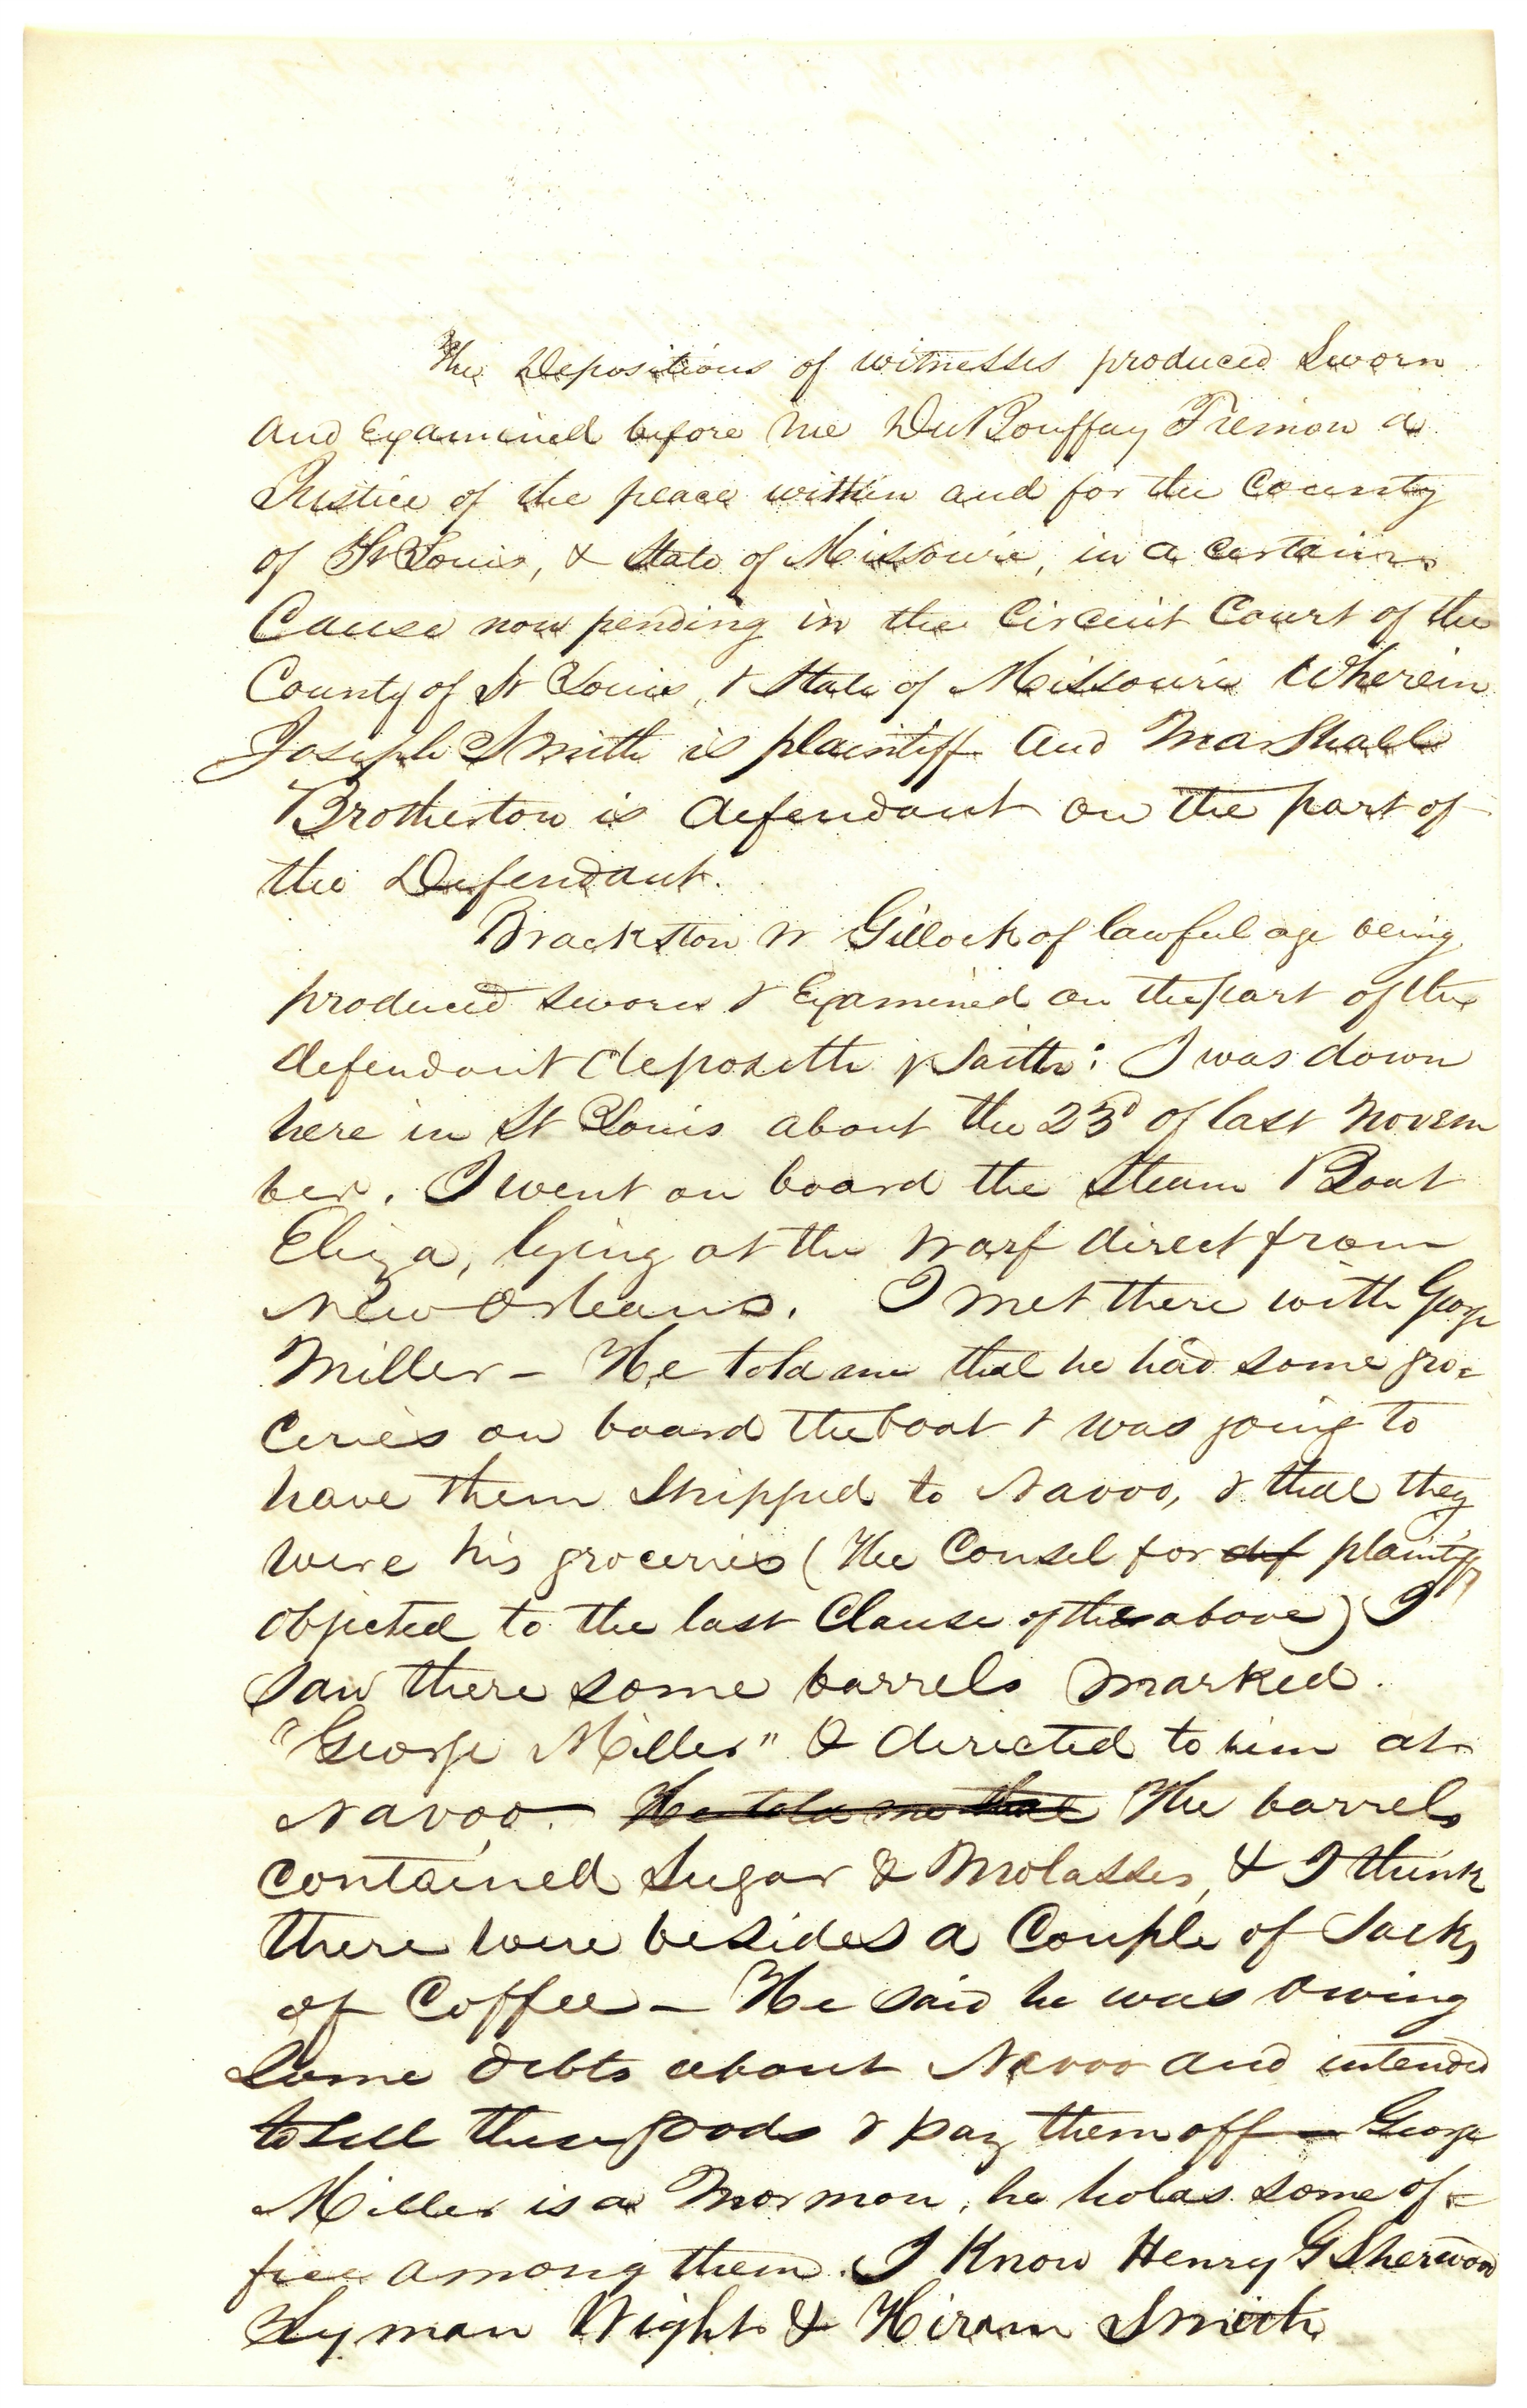 The Depositions of witnesses produced Sworn
and Examined before me DuBouffay Fremon a
Justice of the peace within and for the County
of St Louis, & State of Missouri, in a certain
Cause now pending in the Circuit Court of the
County of St Louis, & State of Missouri Wherein
Joseph Smith is plaintiff and Marshall
Brotherton is defendant on the part of
the Defendant.
Brackston W Gillock of lawful age being
produced sworn & Examined on the part of the
defendant deposeth & saith: I was down
here in St Louis about the 23d of last Novem
ber. I went on board the Steam Boat
Eliza, lying at the warf direct from
New Orleans. I met there with George
Miller – He told me that he had some gro=
ceries on board the boat & was going to
have them shipped to Navoo, & that they
were his groceries (The Consel for def plaintiff
objected to the last Clause of the above) I
saw there some barrels marked.
"George Miller" & directed to him at
Navoo – He told me that The barrels
contained Sugar & Molasses, & I think
there were besides a Couple of Sacks
of Coffee – He said he was owing
some debts about Navoo and intended
to sell these goods & pay them off – George
Miller is a Mormon, he holds some of=
fice among them. I Know Henry G Sherwood
Lyman Wight & Hiram Smith